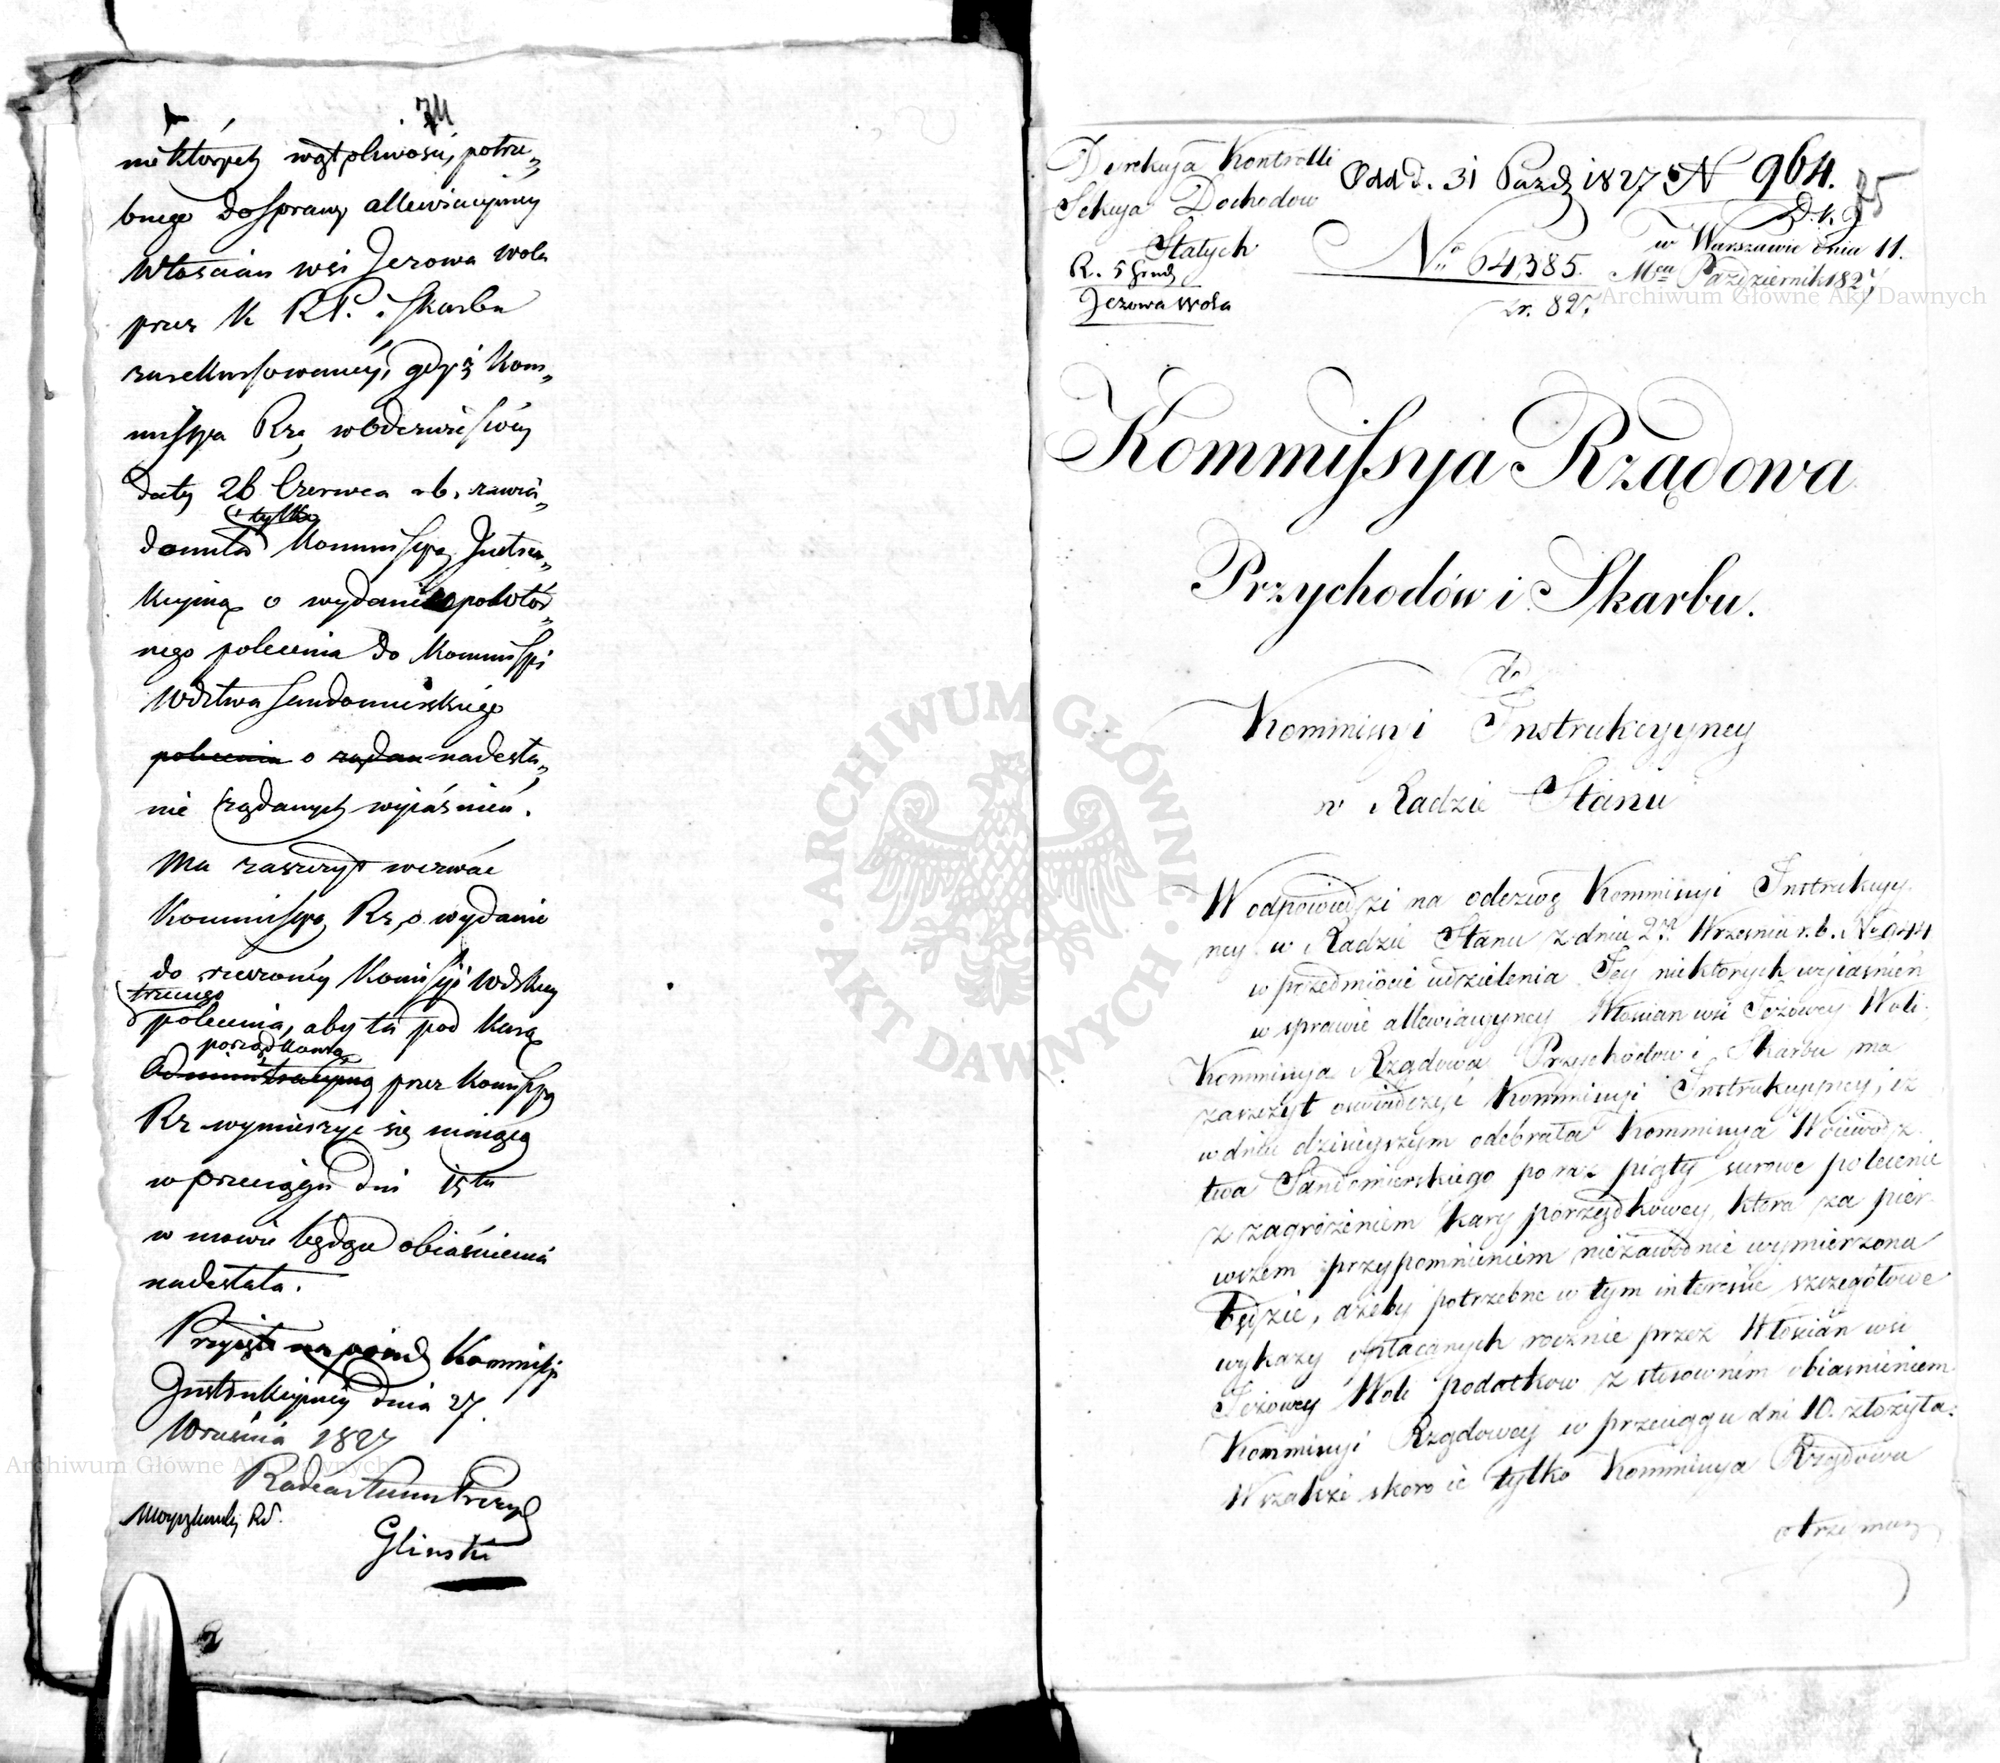 74
niektórych wątpliwości, potrze„
bnego do sprawy allewiacyjney
Włościan wsi Jezowa wola
przez K R P. i Skarbu
zarekursowaney, gdyż Kom„
missya Rzą w odezwie swey
daty 26 Czerwca r.b. zawia„
i tylko
domiła Kommissyą Instru„
kcyiną o wydaniu powtór„
nego polecenia do Kommissyi
Wdztwa Sandomirskiego
polecenia o nadesła„
nie żądanych wyjaśnień.
Ma zaszczyt wezwać
Kommissyą Rz, o wydanie
do rzeczoney Komissyi Wdzkiey
trzeciego
polecenia, aby ta pod karą
porządkową
Administracyiną przez Komissyą
Rz wymierzyć się mającą
w przeciągu dni 15tu
w mowie będące obiaśnienia
nadesłała.
Przyięto na posied Kommissyi
Instrukcyiney dnia 27.
Września 1827
Radca Stanu Prezyd
Gliński
Dyrekcya Kontrolli
Sekcya Dochodow
Stałych
R. 5 Grud
Jezowa Wola
Odd d. 31 Paźdz 1827 N 964.
D.K.J
75
No 64,385.
w Warszawie dnia 11.
Mca Października 1827
Archiwum Główne Akt Dawnych
Kommissya Rządowa
Przychodów i Skarbu.
do
Kommissyi Instrukcyyney
w Radzie Stanu
W odpowiedzi na odezwę Kommissyi Instrukcyy
ney w Radzie Stanu z dnia Września r.b. No 944
w przedmiocie udzielenia Jey niektórych wyiaśnień
w sprawie allewiacyyney Włościan wsi Jeżowey Woli.
Kommissya Rządowa Przychodow i Skarbu ma
zaszczyt oświadczyć Kommissyi Instrukcyyney, iż
w dniu dzisieyszym odebrała Kommissya Woiewodz„
twa Sandomierskiego po raz piąty surowe polecenie
z zagrożeniem kary porządkowey, która za pier„
wszem przypomnieniem niezawodnie wymierzona
będzie, ażeby potrzebne w tym interesie szczegółowe
wykazy opłacanych rocznie przez Włościan wsi
Jeżowey Woli podatkow z stosownem obiaśnieniem
Kommissyi Rządowey w przeciągu dni 10. złożyła.
Wszakże skoro ie tylko Kommissya Rządowa
otrzyma
Archiwum Główne Akt Dawnych
ARCHIWUM GŁÓWNE AKT DAWNYCH